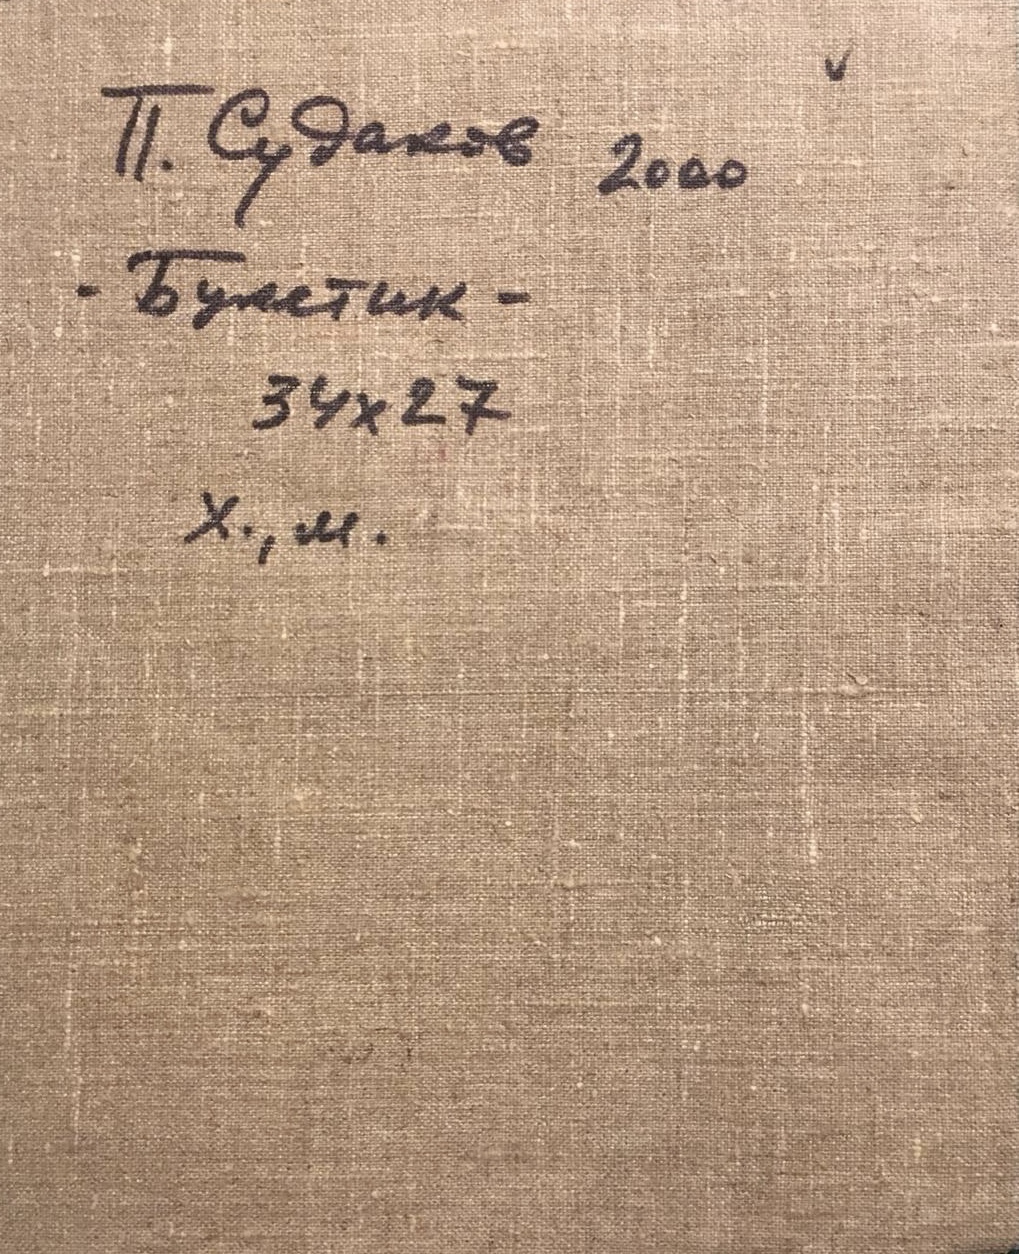 П. Судаков 2000
- Букетик -
34х27
х., м.